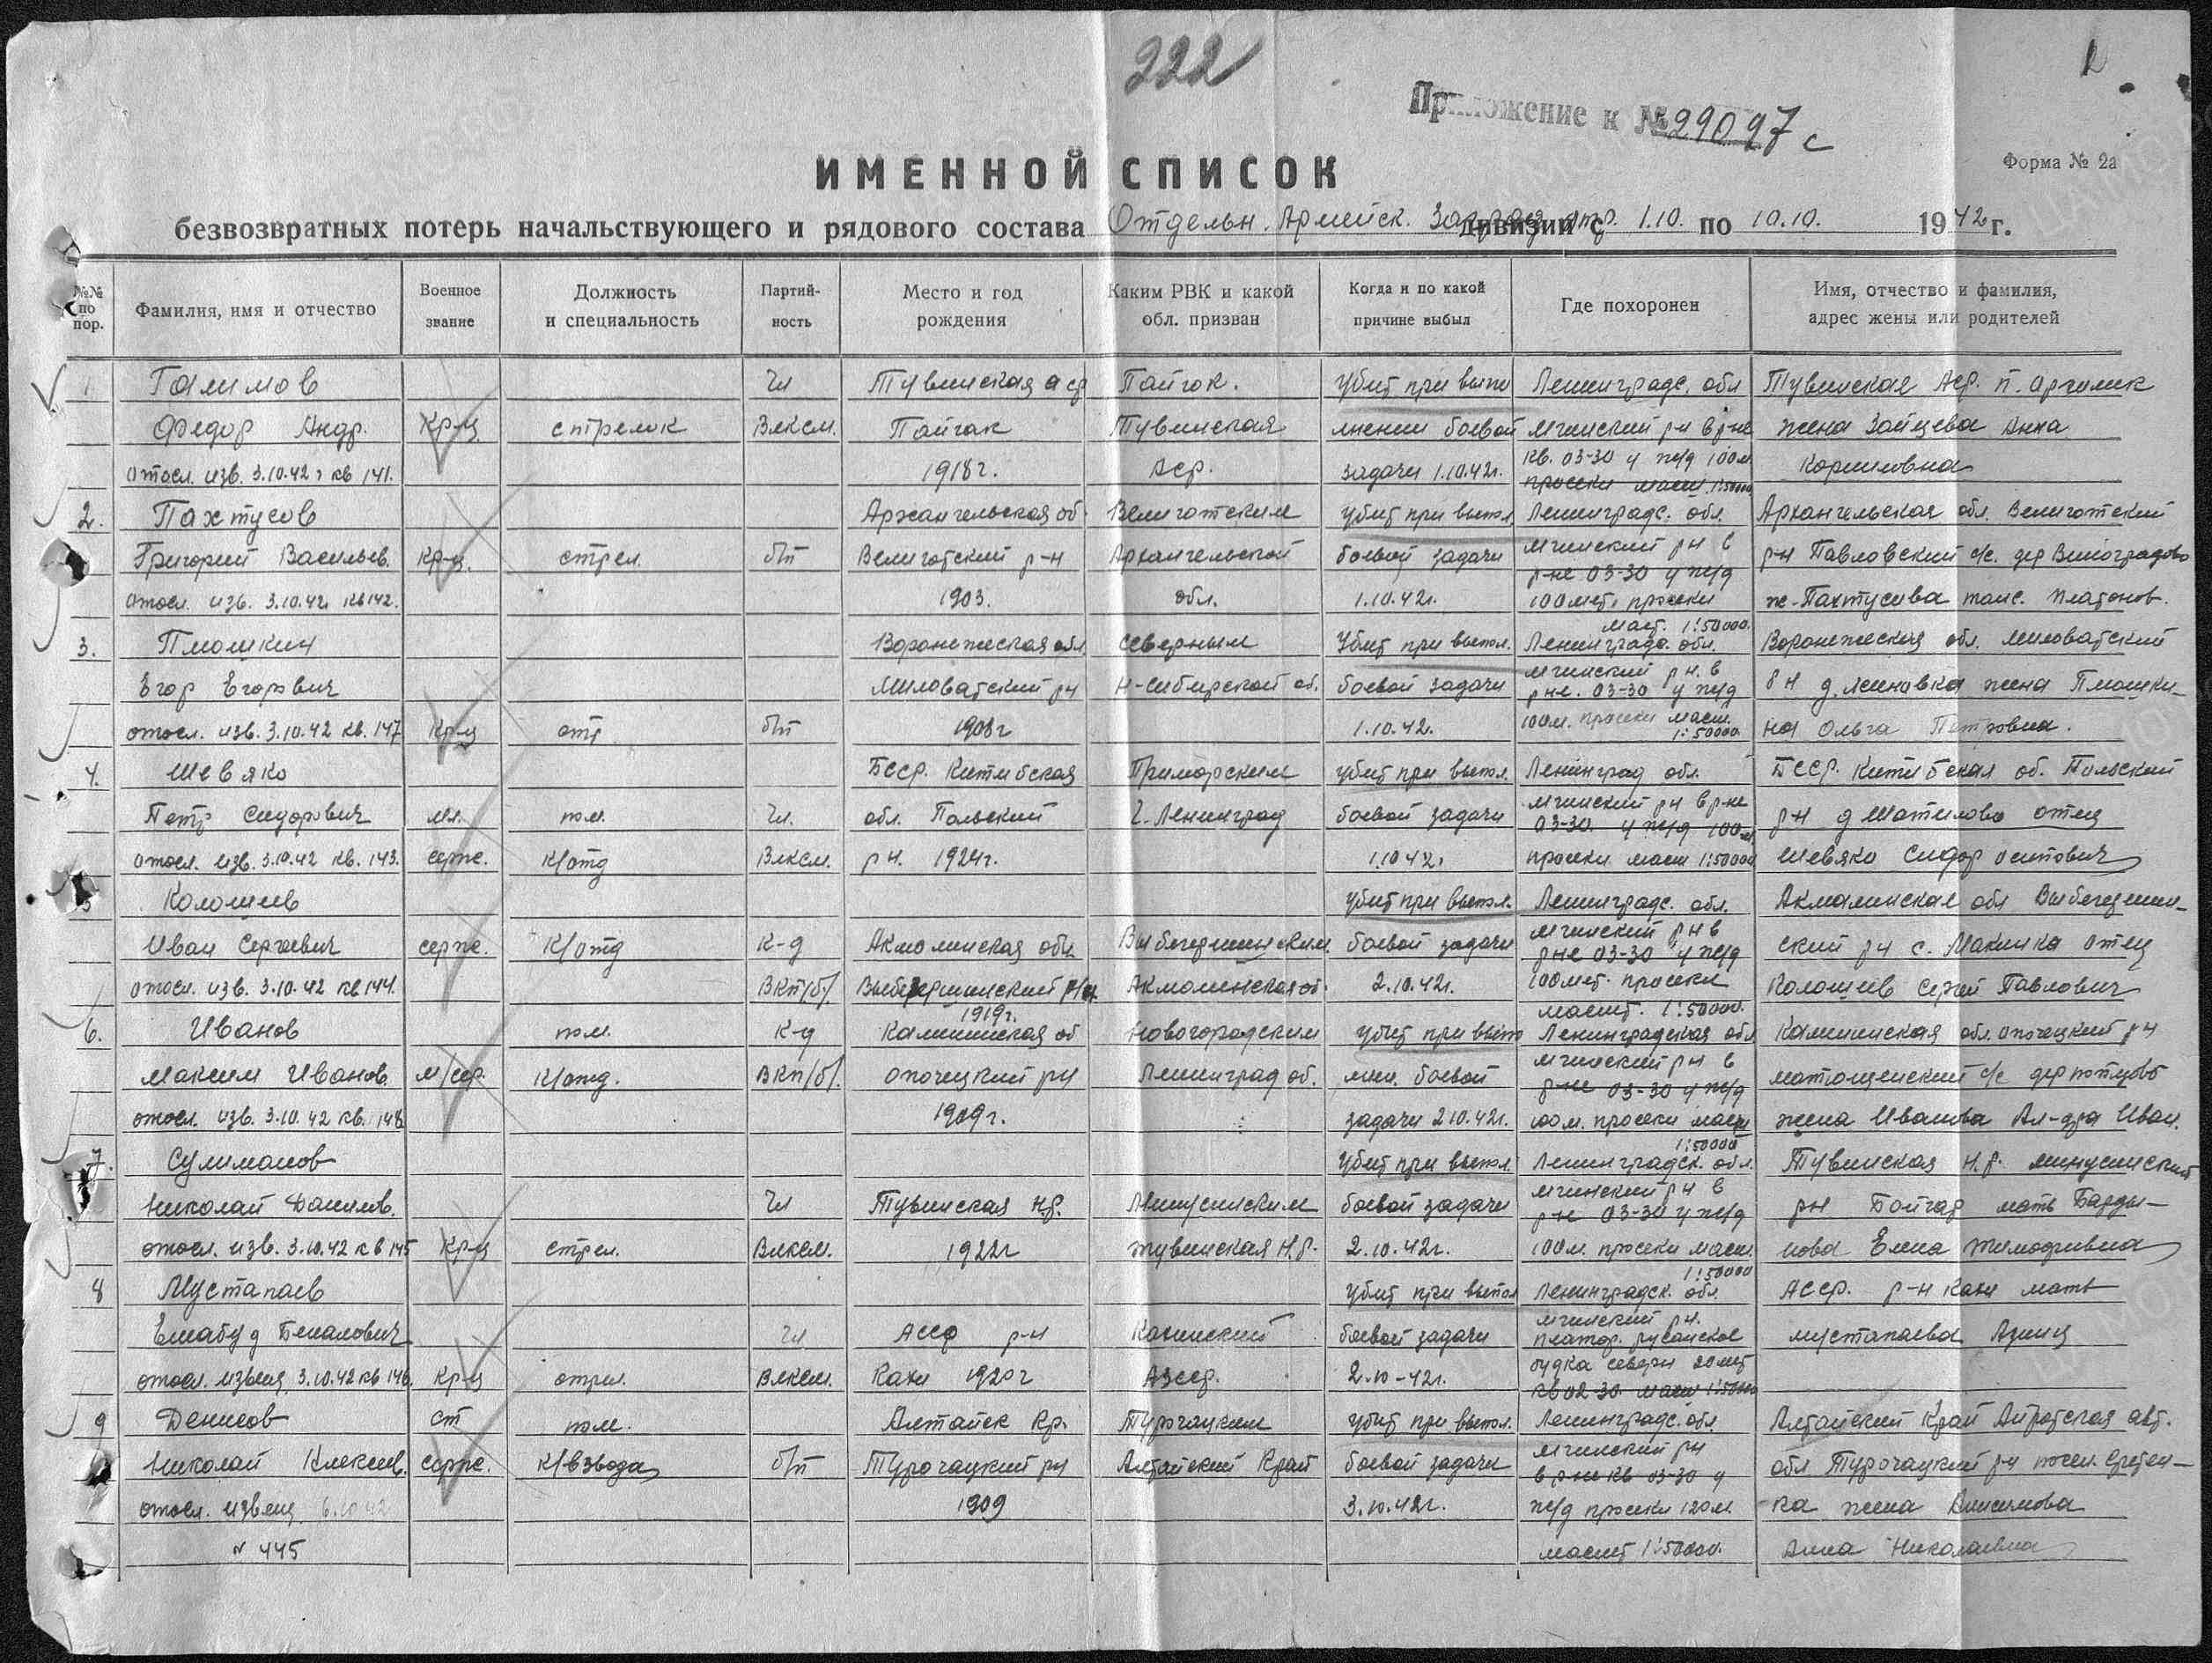 222
2
Приложение к № 29097с
ИМЕННОЙ СПИСОК
Форма № 2а
безвозвратных потерь начальствующего и рядового состава Отдельн. Армейск. дивизии с 1.10. по 10.10. 1942 г.
№№ по пор.
Фамилия, имя и отчество
Военное звание
Должность и специальность
Партий-ность
Место и год рождения
Каким РВК и какой обл. призван
Когда и по какой причине выбыл
Где похоронен
Имя, отчество и фамилия, адрес жены или родителей
1 Галимов Чл Тувинская аср Пайгок. Убит при выпо Ленинградс. обл Тувинская Аср. п.
Федор Андр. Кр-ц стрелок Влксм. Пайгак Тувинская лнении боевой Мгинский рн в р-не жена Зайцева Анна
отосл. изв. 3.10.42г кв 141. 1918г. Аср. задачи 1.10.42г. кв. 03-30 у ж/д 100м Корниловна
просеки масш. 1:50000
2. Пахтусов Архангельская об. убит при выпол Ленинградс. обл. Архангельская обл.
Григорий Васильев. Кр-ц. стрел. б/п р-н Архангельской боевой задачи Мгинский рн в р-н Павловский с/с. дер Виноградово
отосл. изв. 3.10.42г кв 142. 1903. обл. 1.10.42г. р-не 03-30 у ж/д
100мет. просеки ж-Пахтусова Платонов.
масш. 1:50000.
3. Плошкин Воронежская обл. Северным Убит при выпол. Ленинградс. обл. Воронежская обл.
Егор Егорович рн Н-Сибирской об. боевой задачи Мгинский р.н. в
р-не. 03-30 у ж/д рн д. жена Плошки-
отосл. изв. 3.10.42 кв. 147 Кр-ц б/п 1908г 1.10.42. 100м. просеки масш. 1:50000 на Ольга Петровна.
4. Шевяко Бсср. Приморским убит при выпол. Ленинград обл. Бсср. об. Польский
Петр Сидорович мл. пом. Чл. обл. Польский г. Ленинград боевой задачи Мгинский рн в р-не рн д Шатилово отец
03-30. у ж/д 100м
отосл. изв. 3.10.42 кв. 143. серж. к/отд Влксм. рн. 1924г. 1.10 42г просеки масш 1:50000 Шевяко Сидор Осипович
5 Колошеев убит при выпол. Ленинградс. обл. Акмалинская обл
Иван Сергеевич серж. к/отд к-д Акмолинская обл. боевой задачи Мгинский рн в ский рн с. Макинка отец
р-не 03-30 у ж/д
отосл. изв. 3.10.42 кв 144. ВКП/б/. 1919г. Акмолинская об. 2.10.42г. 100мет. просеки Колошеев Сергей Павлович
масшт. 1:50000.
6. Иванов пом. к-д Калининская об Новогородским убит при выпо Ленинградская обл Калининская обл. опочецкий рн
Максим Иванов. м/сер. к/отд. ВКП/б/. опочецкий рн Ленинград об. лн. боевой Мгинский рн в
р-не 03-30 у ж/д с/с дер
отосл. изв. 3.10.42 кв. 148 1909г. задачи 2 10.42г. 100м. просеки масш 1:50000 жена Иванова Ал-дра Иван.
7. Сулиманов Убит при выпол. Ленинградск. обл. Тувинская н.р. минусинский
Николай Данилов. Чл Тувинская н.р. Минусинским боевой задачи Мгинский рн в рн мать
р-не 03-30 у ж/д
отосл. изв. 3.10.42 кв 145 Кр-ц стрел. Влксм. 1922г тувинская н.р. 2.10.42г. 100м. просеки масш. 1:50000 нова Елена
8 Мустапаев убит при выпол Ленинградск. обл. Асср. р-н Кахи мать
Бекалович Чл Асср р-н Кахинский боевой задачи Мгинский рн. мустапаева
отосл. извещ. 3.10.42 кв 146. Кр-ц стрел. Влксм. Кахи 1920г Азсср. 2-10-42г. будка северн 20мет
кв 02-30 масш 1:50000
9 Денисов ст пом. Алтайск кр. Турочацким убит при выпол. Ленинградс. обл. Алтайский Край Айротская авт.
Николай Алексеев. серж. к/взвода б/п Турочацкий рн Алтайский Край боевой задачи Мгинский рн обл Турочацкий рн
в р-не кв 03-30 у
отосл. извещ. 6.10.42 1909 3.10.42г. ж/д просеки 120м. ка жена Анисимова
№ 445 масшт 1:50000. Анна Николаевна